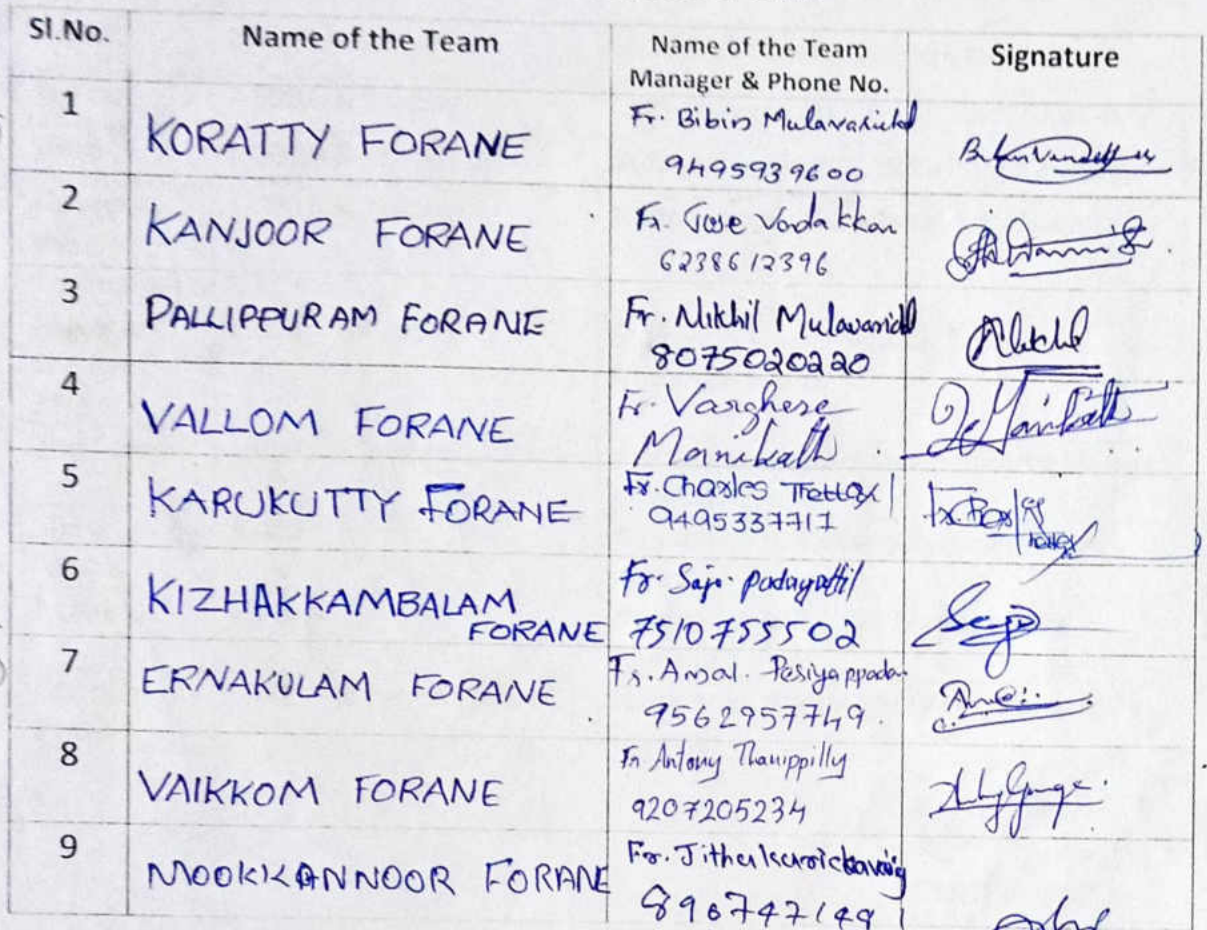 Sl.No. Name of the Team Name of the Team Manager & Phone No. Signature
1 KORATTY FORANE Fr. Bibin Mulavarickal
9495939600
2 KANJOOR FORANE Fr. Jose Vadakkan
6238612396
3 PALLIPPURAM FORANE Fr. Nikhil Mulavarickal
8075020220 Nikhil
4 VALLOM FORANE Fr. Varghese
Manikath
5 KARUKUTTY FORANE Fr. Charles Thettayil
9495337717
6 KIZHAKKAMBALAM Fr. Sajo Padayattil
FORANE 7510755502 Sajo
7 ERNAKULAM FORANE Fr. Amal
9562957749
8 VAIKKOM FORANE Fr. Antony Thanippilly
9207205234
9 MOOKKANNOOR FORANE Fr. Jithu
896747149